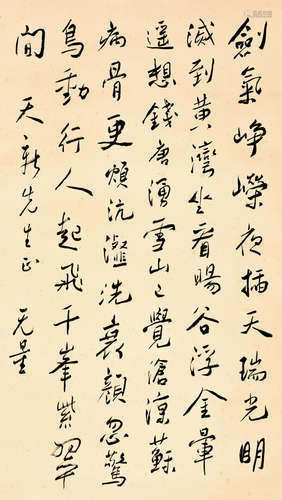 劍氣崢嶸夜插天瑞光明
滅到黃灣坐看暘谷浮金暈
遥想錢唐湧雪山已覺滄涼蘇
病骨更煩沆瀣洗衰顏忽驚
鳥動行人起飛千峯紫翠
間 天新先生正 无量